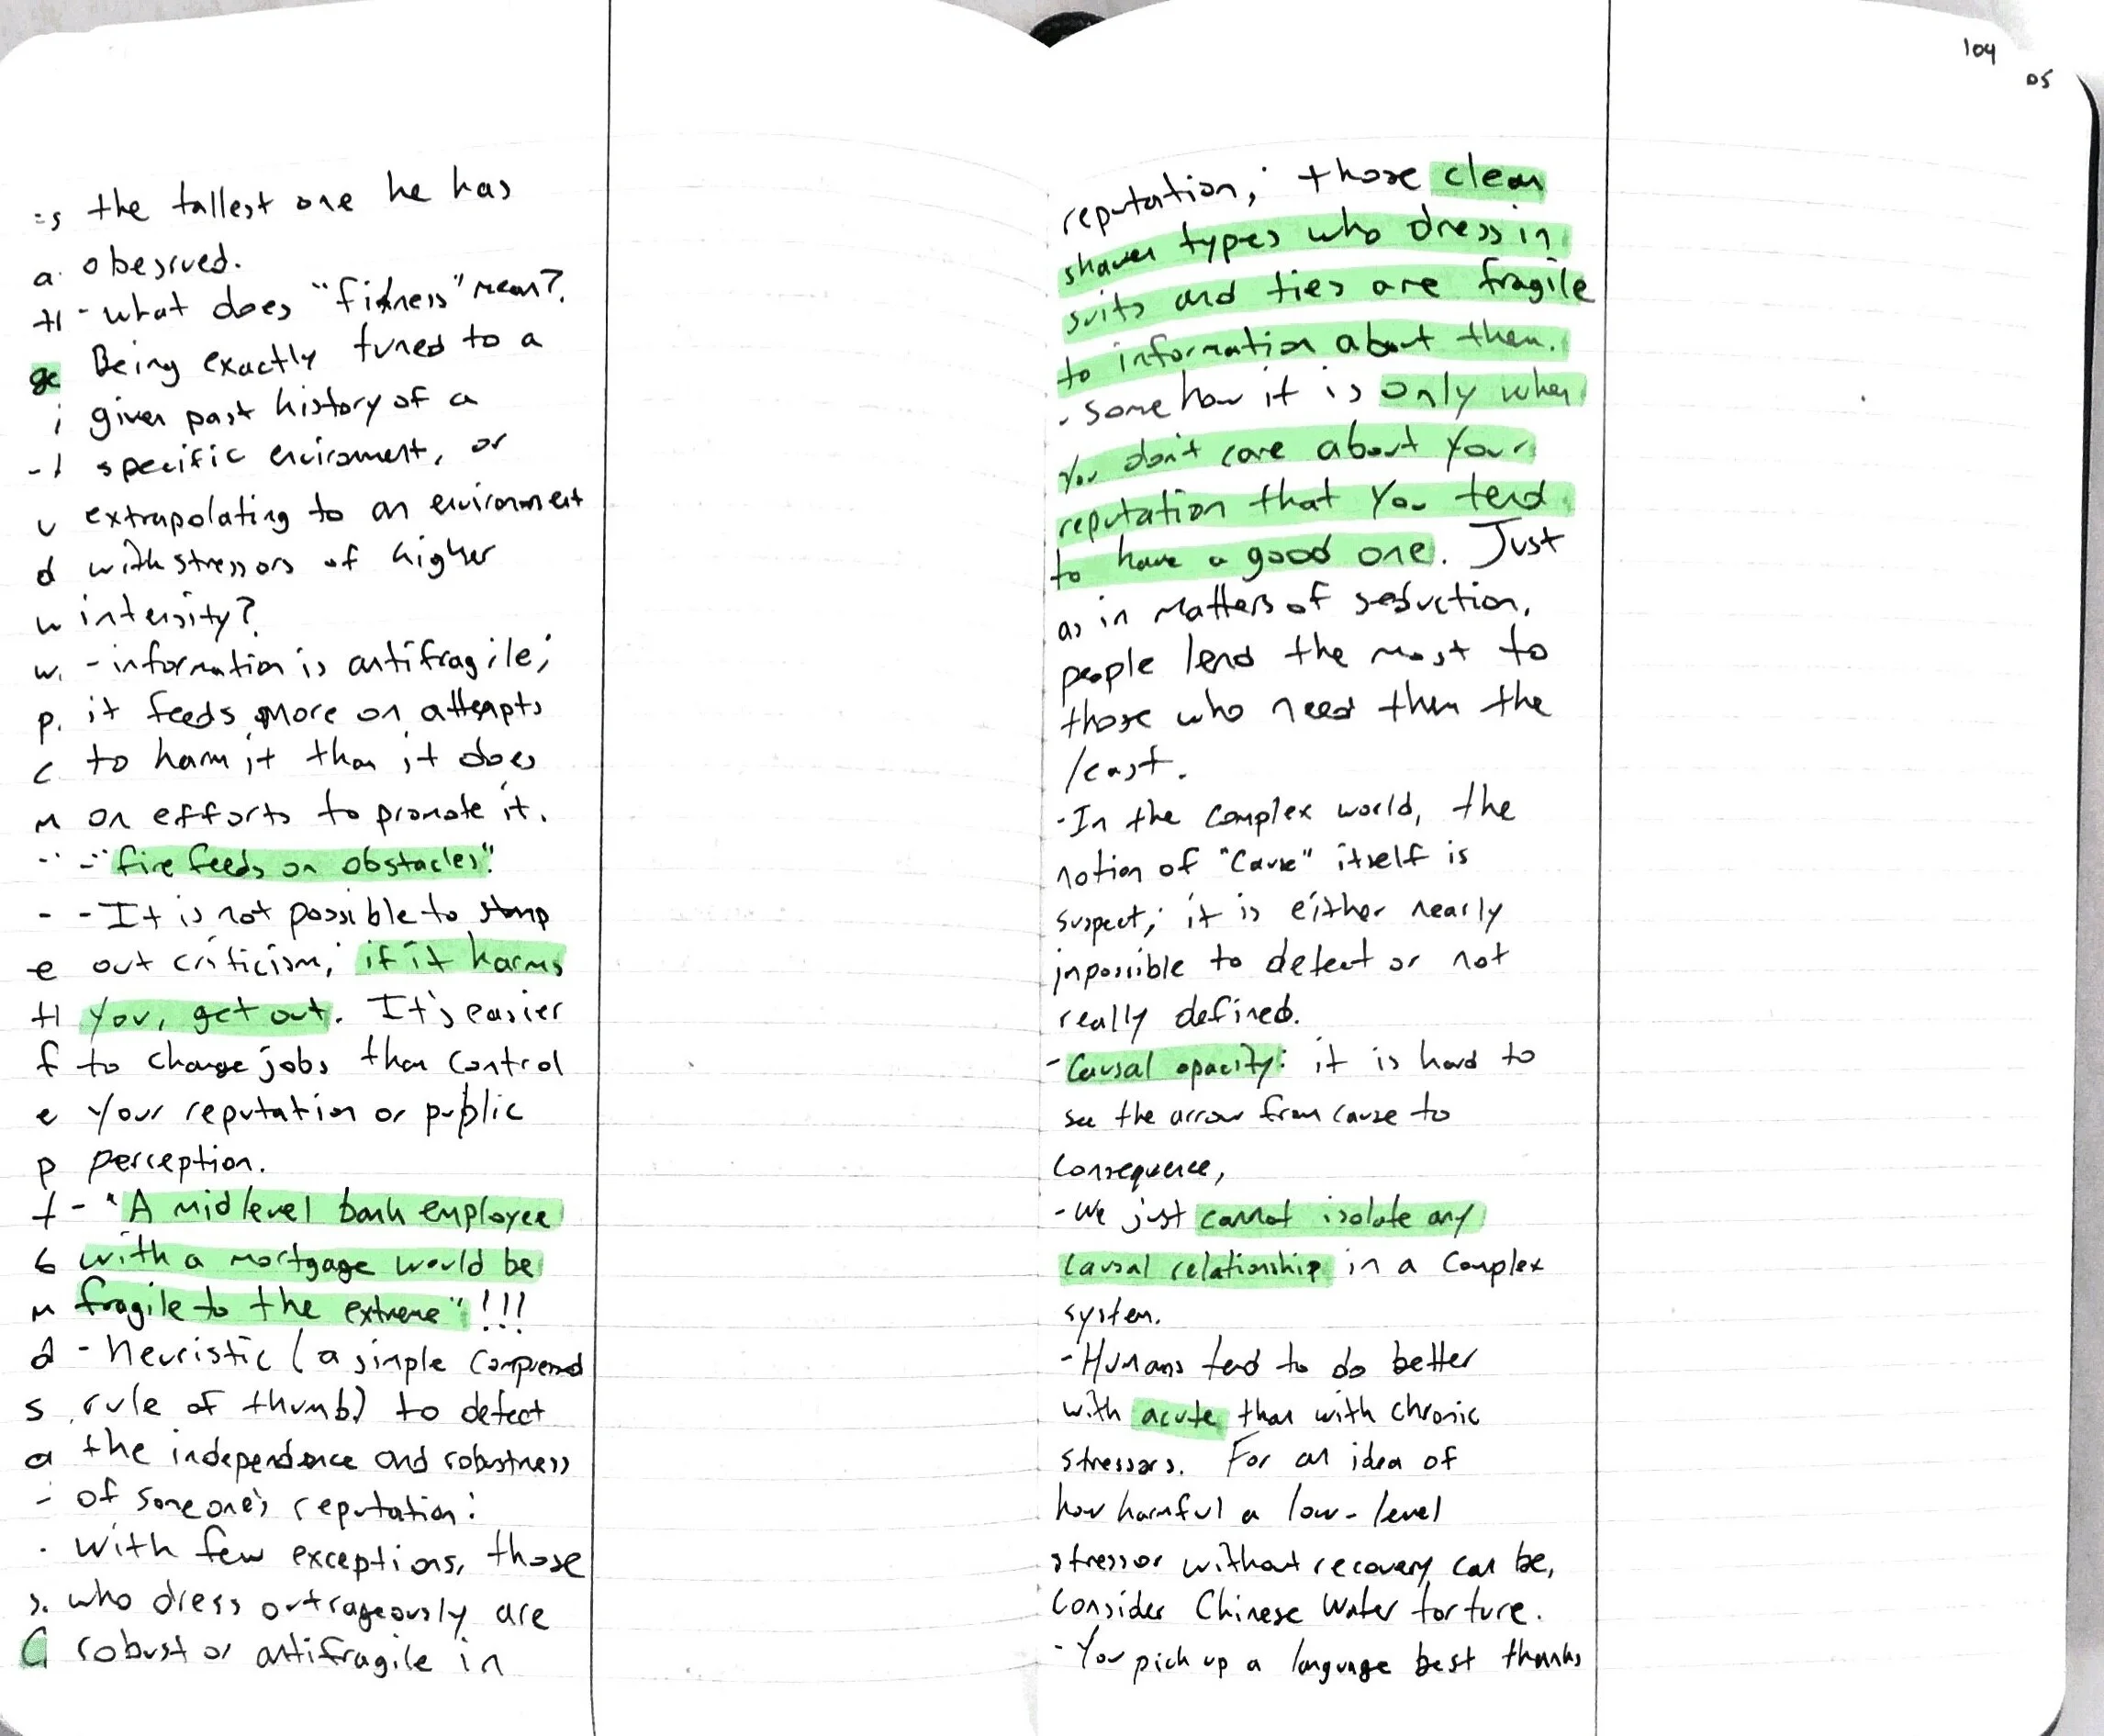 104
05
is the tallest one he has
a. obesrved.
th - what does "fitness" mean?
ge Being exactly tuned to a
i given past history of a
-t specific enviroment, or
u extrapolating to an environment
d with stressors of higher
w intensity?
w. - information is antifragile;
p. it feeds more on attempts
c to harm it than it does
m on efforts to promote it.
- "fire feeds on obstacles".
- - It is not possible to stomp
e out criticism; if it harms
th you, get out. It's easier
f to change jobs than control
e your reputation or public
p perception.
t - "A midlevel bank employee
b with a mortgage would be
m fragile to the extreme" !!!
d - heuristic (a simple compressed
s rule of thumb) to detect
a the independence and robustness
- of someone's reputation:
· with few exceptions, those
s. who dress outrageously are
C robust or antifragile in
reputation; those clean
shaven types who dress in
suits and ties are fragile
to information about them.
- Some how it is only when
you don't care about your
reputation that you tend
to have a good one. Just
as in matters of seduction,
people lend the most to
those who need them the
least.
- In the complex world, the
notion of "Cause" itself is
suspect; it is either nearly
impossible to detect or not
really defined.
- Causal opacity: it is hard to
see the arrow from cause to
consequence,
- We just cannot isolate any
causal relationship in a complex
system.
- Humans tend to do better
with acute than with chronic
stressors. For an idea of
how harmful a low-level
stressor without recovery can be,
consider Chinese Water torture.
- You pick up a language best thanks